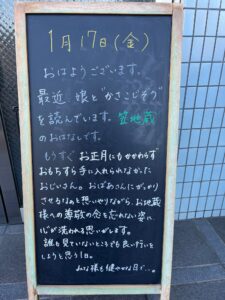 1月17日(金)
おはようございます。
最近 娘と"かさこじぞう"
を読んでいます。笠地蔵
のおはなしです。
もうすぐお正月にもかかわらず
おもちすら手に入れられなかった
おじいさん。おばあさんにがっかり
させるなぁと思いやりながら、お地蔵
様への尊敬の念を忘れない姿に
心が洗われる思いがします。
誰も見ていないところでも良い行いを
しようと思う1日。
みな様も健やかな日で…。